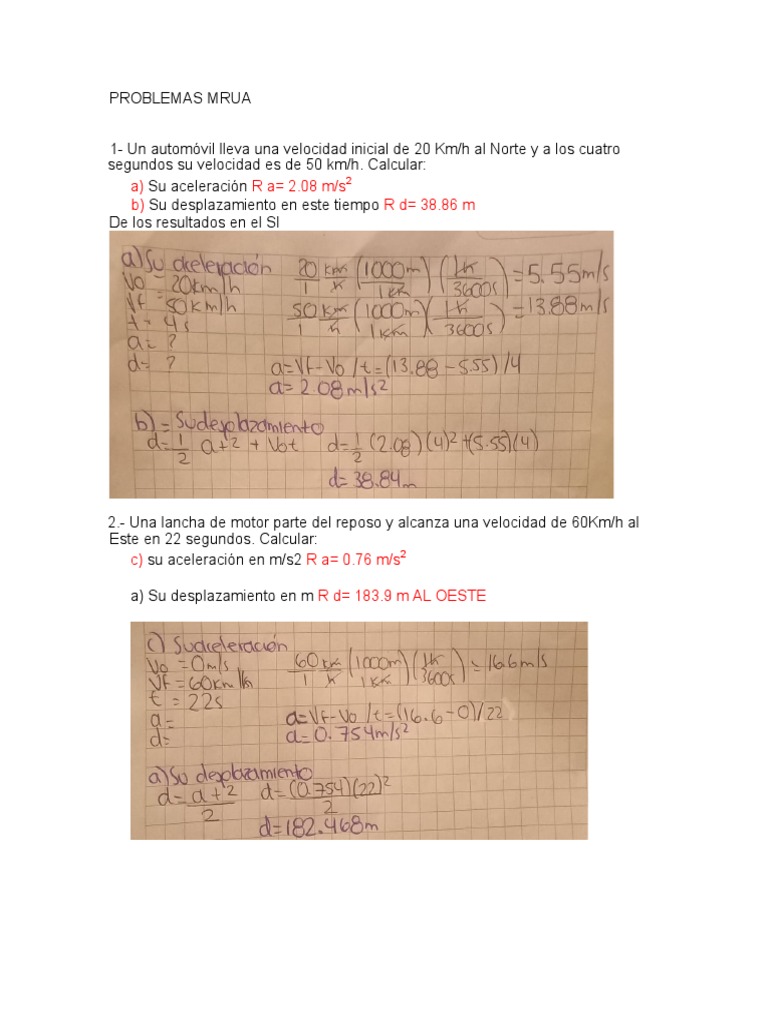 PROBLEMAS MRUA
1- Un automóvil lleva una velocidad inicial de 20 Km/h al Norte y a los cuatro
segundos su velocidad es de 50 km/h. Calcular:
a) Su aceleración R a= 2.08 m/s²
b) Su desplazamiento en este tiempo R d= 38.86 m
De los resultados en el SI
a) Su aceleración
Vo = 20km/h
Vf = 50km/h
t = 4s
a = ?
d = ?
20/1 km/h (1000m/1km) (1h/3600s) = 5.55m/s
50/1 km/h (1000m/1km) (1h/3600s) = 13.88m/s
a=Vf-Vo/t=(13.88-5.55)/4
a=2.08m/s²
b) = Su desplazamiento
d=1/2 at² + Vot d=1/2 (2.08)(4)²+(5.55)(4)
d=38.84m
2.- Una lancha de motor parte del reposo y alcanza una velocidad de 60Km/h al
Este en 22 segundos. Calcular:
c) su aceleración en m/s2 R a= 0.76 m/s²
a) Su desplazamiento en m R d= 183.9 m AL OESTE
c) Su aceleración
Vo = 0m/s
Vf = 60km/h
t = 22s
a=
d=
60/1 km/h (1000m/1km) (1h/3600s) = 16.6m/s
a=Vf-Vo/t=(16.6-0)/22
a=0.754m/s²
a) Su desplazamiento
d=at²/2 d=(0.754)(22)²/2
d=182.468m